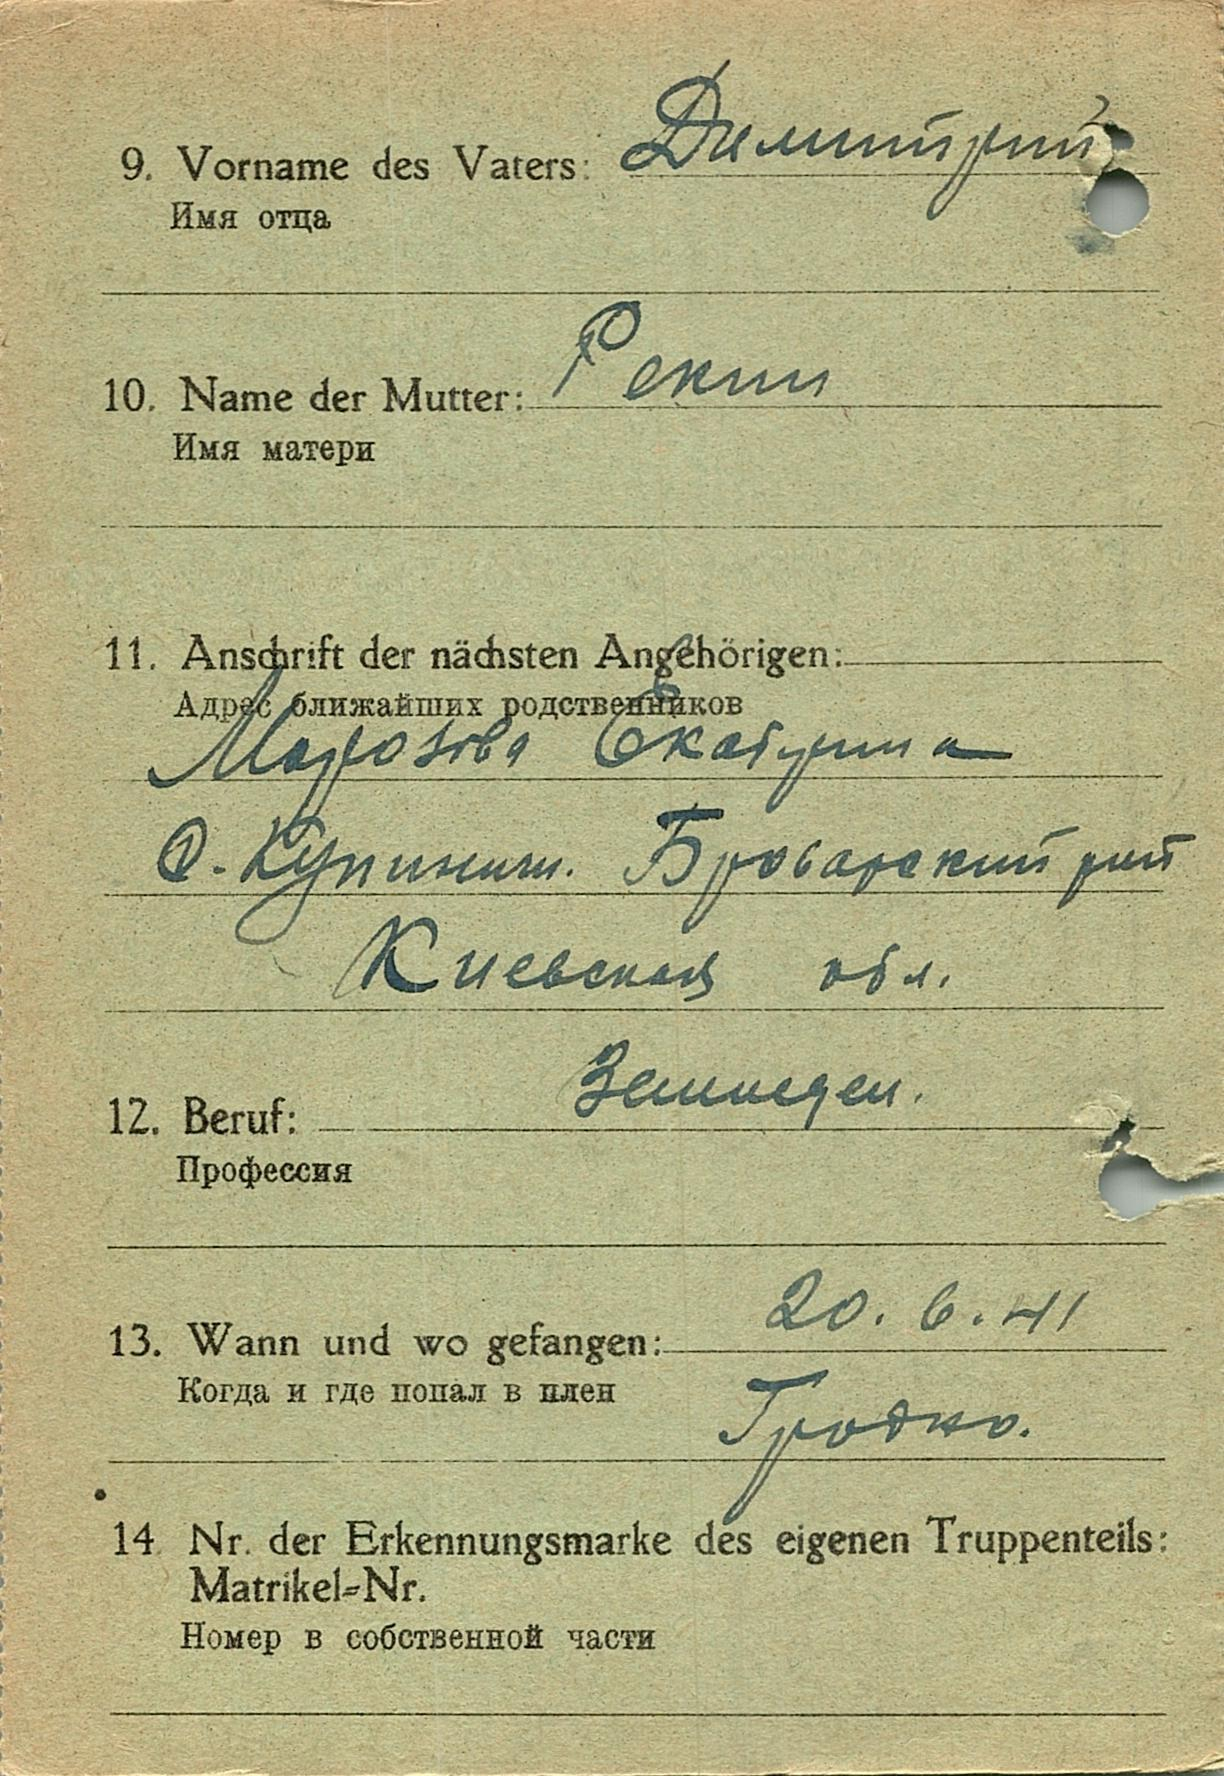 9. Vorname des Vaters: Димитрий
Имя отца
10. Name der Mutter: Рекии
Имя матери
11. Anschrift der nächsten Angehörigen:
Адрес ближайших родственников
Марозова Екатирина
Броварский рай
Киевская обл.
12. Beruf: Земледел.
Профессия
13. Wann und wo gefangen: 20. 6. 41
Когда и где попал в плен
Гродно.
14 Nr. der Erkennungsmarke des eigenen Truppenteils:
Matrikel-Nr.
Номер в собственной части